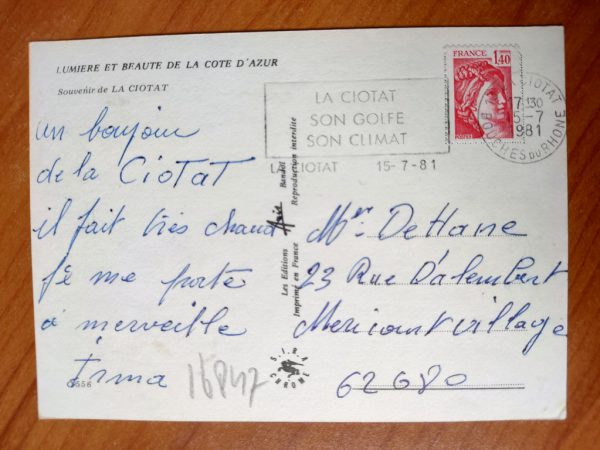 LUMIERE ET BEAUTE DE LA COTE D'AZUR
Souvenir de LA CIOTAT
un bonjour
de la CIOTAT
il fait très chaud
je me porte
à merveille
Irma
G556
16847
LA CIOTAT
SON GOLFE
SON CLIMAT
LA CIOTAT 15-7-81
FRANCE
1,40
POSTES
LA CIOTAT
17H30
15-7
1981
BOUCHES DU RHONE
Les Editions Aris Bandol
Imprimé en France Reproduction interdite
S.I.R.A.
CHROME
Mer DeHane
23 Rue D'alembert
Mericourt village
62680